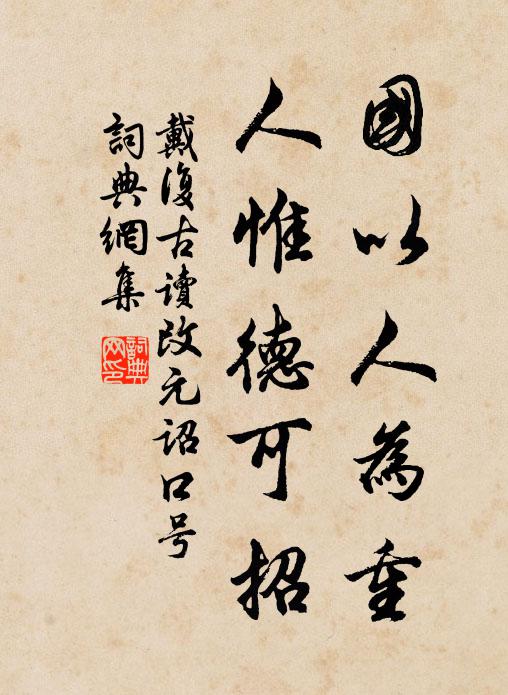 國以人為重
人惟德可招
戴復古讀改元詔口号
詞典網集
詞典
网印